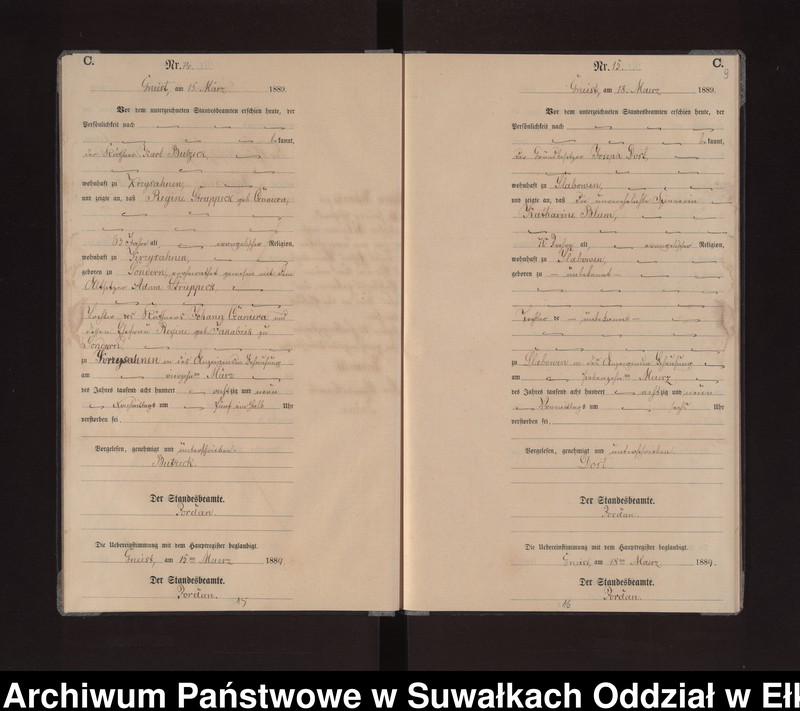 C.
Nr. 14.
Gneist, am 15. März 1889.
Vor dem unterzeichneten Standesbeamten erschien heute, der
Persönlichkeit nach
bekannt,
der Käthner Karl Butzeck,
wohnhaft zu Krzysahnen,
und zeigte an, daß Regine Struppeck geb. Czanera,
83 Jahre alt evangelischer Religion,
wohnhaft zu Krzysahnen,
geboren zu Gondern, verheirathet gewesen mit dem
Altsitzer Adam Struppeck
Tochter des Käthners Johann Czanera und
dessen Ehefrau Regine geb. zu
Gondern
zu Krzysahnen in des Anzeigenden Behausung
am vierzehnten März
des Jahres tausend acht hundert achtzig und neun
Nachmittags um fünf ein halb Uhr
verstorben sei.
Vorgelesen, genehmigt und unterschrieben.
Butzeck
Der Standesbeamte.
Pordan.
Die Uebereinstimmung mit dem Hauptregister beglaubigt.
Gneist, am 15ten Maerz 1889
Der Standesbeamte.
Pordan.
15
C.
9
Nr. 15.
Gneist, am 18. Maerz 1889.
Vor dem unterzeichneten Standesbeamten erschien heute, der
Persönlichkeit nach
bekannt,
der Grundbesitzer Dorl,
wohnhaft zu Slabowen,
und zeigte an, daß die unverehelichte
Katharine Blum,
70 Jahre alt, evangelischer Religion,
wohnhaft zu Slabowen,
geboren zu – unbekannt –
Tochter de – unbekannt –
zu Slabowen in des Anzeigenden Behausung
am siebenzehnten Maerz
des Jahres tausend acht hundert achtzig und neun
Vormittags um sechs Uhr
verstorben sei.
Vorgelesen, genehmigt und unterschrieben.
Dorl
Der Standesbeamte.
Pordan.
Die Uebereinstimmung mit dem Hauptregister beglaubigt.
Gneist, am 18ten Maerz 1889.
Der Standesbeamte.
Pordan.
16
Archiwum Państwowe w Suwałkach Oddział w Ełk